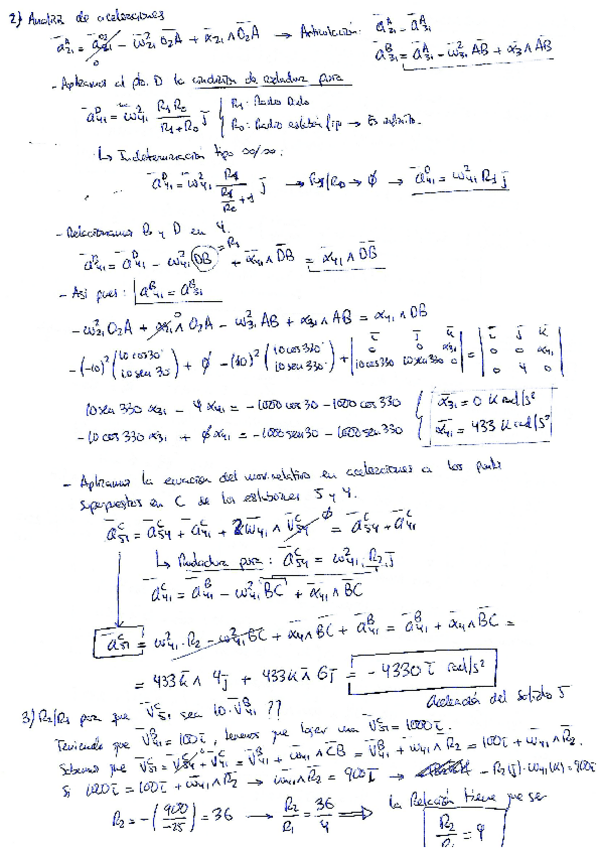 2) Analisis de aceleraciones
a^A_21 = a^O2_21 - ω²_21 O2A + α_21 ∧ O2A → Articulación: a^A_21 = a^A_31
a^B_31 = a^A_31 - ω²_31 AB + α_31 ∧ AB
- Aplicamos al pto. D la condición de rodadura pura
a^D_41 = ω²_41 R1 R0 / (R1 + R0) j { R1: Radio Disco
R0: Radio eslabón fijo → Es infinito.
↳ Indeterminación tipo ∞/∞:
a^D_41 = ω²_41 R1 / (R1/R0 + 1) j → R1/R0 → 0 → a^D_41 = ω²_41 R1 j
- Relacionamos B y D en 4.
a^B_41 = a^D_41 - ω²_41 DB + α_41 ∧ DB = α_41 ∧ DB
= R1
- Asi pues: a^B_41 = a^B_31
- ω²_21 O2A + α_21 ∧ O2A - ω²_31 AB + α_31 ∧ AB = α_41 ∧ DB
-(-10)² (10 cos 30 10 sen 30) + 0 - (10)² (10 cos 330 10 sen 330) + | i j k 0 0 α31 10 cos 330 10 sen 330 0 | = | i j k 0 0 α41 0 4 0 |
10 sen 330 α31 - 4 α41 = -1000 cos 30 - 1000 cos 330 { α31 = 0 k rad/s²
-10 cos 330 α31 + 0 α41 = -1000 sen 30 - 1000 sen 330 α41 = 433 k rad/s²
- Aplicamos la ecuación del mov. relativo en aceleraciones a los puntos
superpuestos en C de los eslabones 5 y 4.
a^C_51 = a^C_54 + a^C_41 + 2 ω_41 ∧ V^C_54 = a^C_54 + a^C_41
↳ Rodadura pura: a^C_54 = ω²_41 · R2 · j
a^C_41 = a^B_41 - ω²_41 BC + α_41 ∧ BC
a^C_51 = ω²_41 · R2 - ω²_41 BC + α_41 ∧ BC + a^B_41 = a^B_41 + α_41 ∧ BC =
= 433 k ∧ 4 j + 433 k ∧ 6 j = -4330 i rad/s²
Aceleración del solido 5
3) R2/R1 para que V^C_51 sea 10 · V^B_41 ??
Teniendo que V^B_41 = 100 i, tenemos que lograr una V^C_51 = 1000 i.
Sabemos que V^C_51 = V^C_54 + V^C_41 = V^B_41 + ω_41 ∧ CB = V^B_41 + ω_41 ∧ R2 = 100 i + ω_41 ∧ R2.
Si 1000 i = 100 i + ω_41 ∧ R2 → ω_41 ∧ R2 = 900 i → - R2 (j) · ω_41 (k) = 900 i
R2 = -(900/-25) = 36 → R2/R1 = 36/4 ⟹ la Relación tiene que ser
R2/R1 = 9